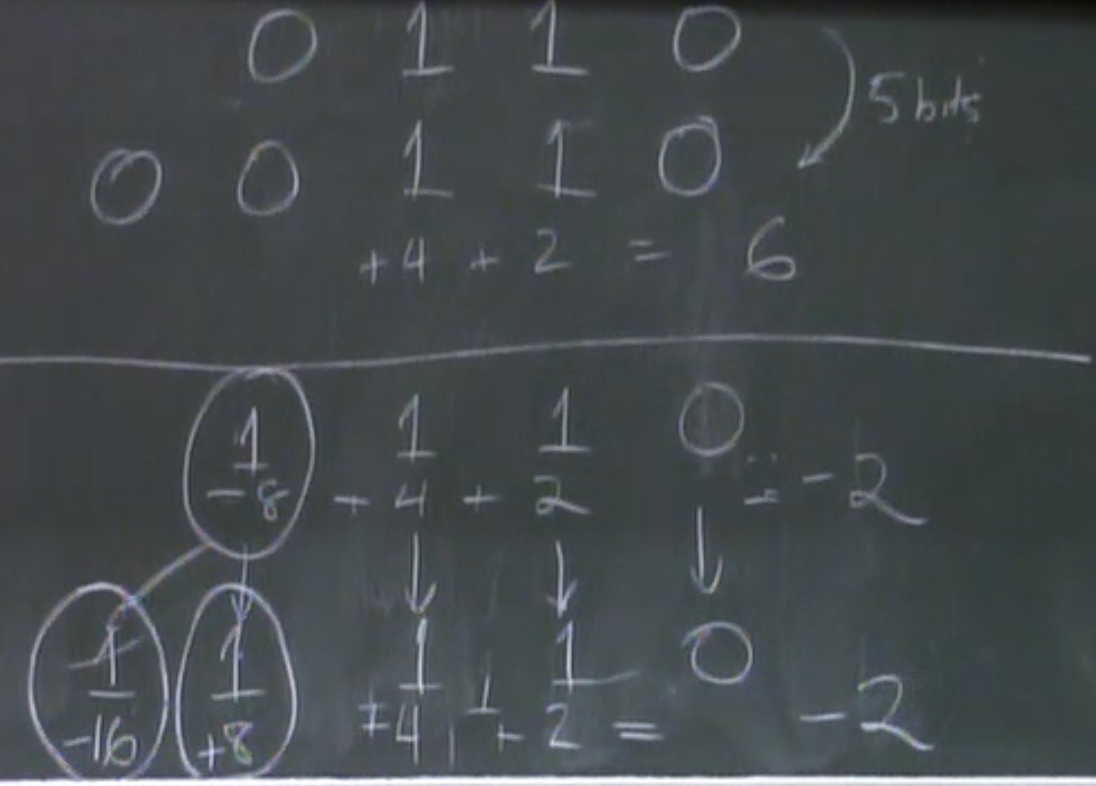 0 1 1 0
5 bits
0 0 1 1 0
+4 + 2 = 6
1 1 1 0
-8 + 4 + 2 = -2
1 1 1 1 0
-16 +8 +4 + 2 = -2